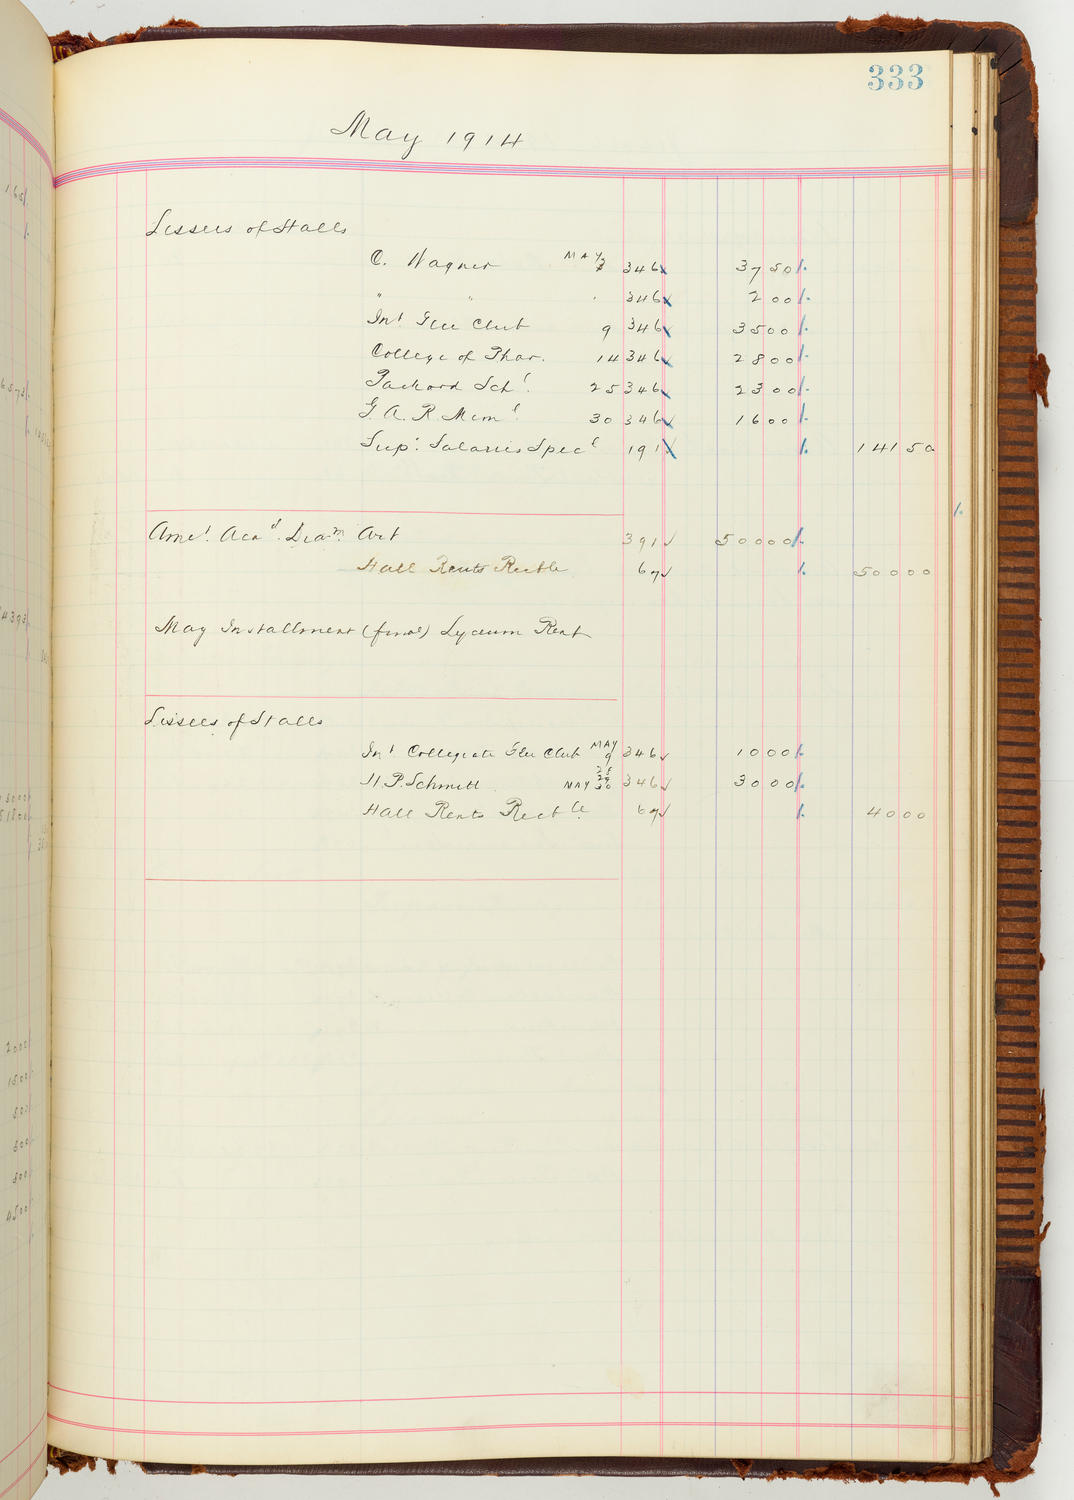 333
May 1914
Lessees of Stalls
C. Wagner MAY 2 346 37 50
" " " 346 2 00
Int Glee Club 9 346 35 00
College of Phar. 14 346 28 00
Packard Schl. 25 346 23 00
G. A. R. Meml. 30 346 16 00
Sup. Salaries Specl 191 141 50
Amer. Acad. Dram. Art 391 500 00
Hall Rents Rectble 67 500 00
May Installment (final) Lyceum Rent
Lessees of Stalls
Int Collegiate Glee Club MAY 9 346 10 00
28
29
H. P. Schmitt MAY 30 346 30 00
Hall Rents Rectble. 67 40 00